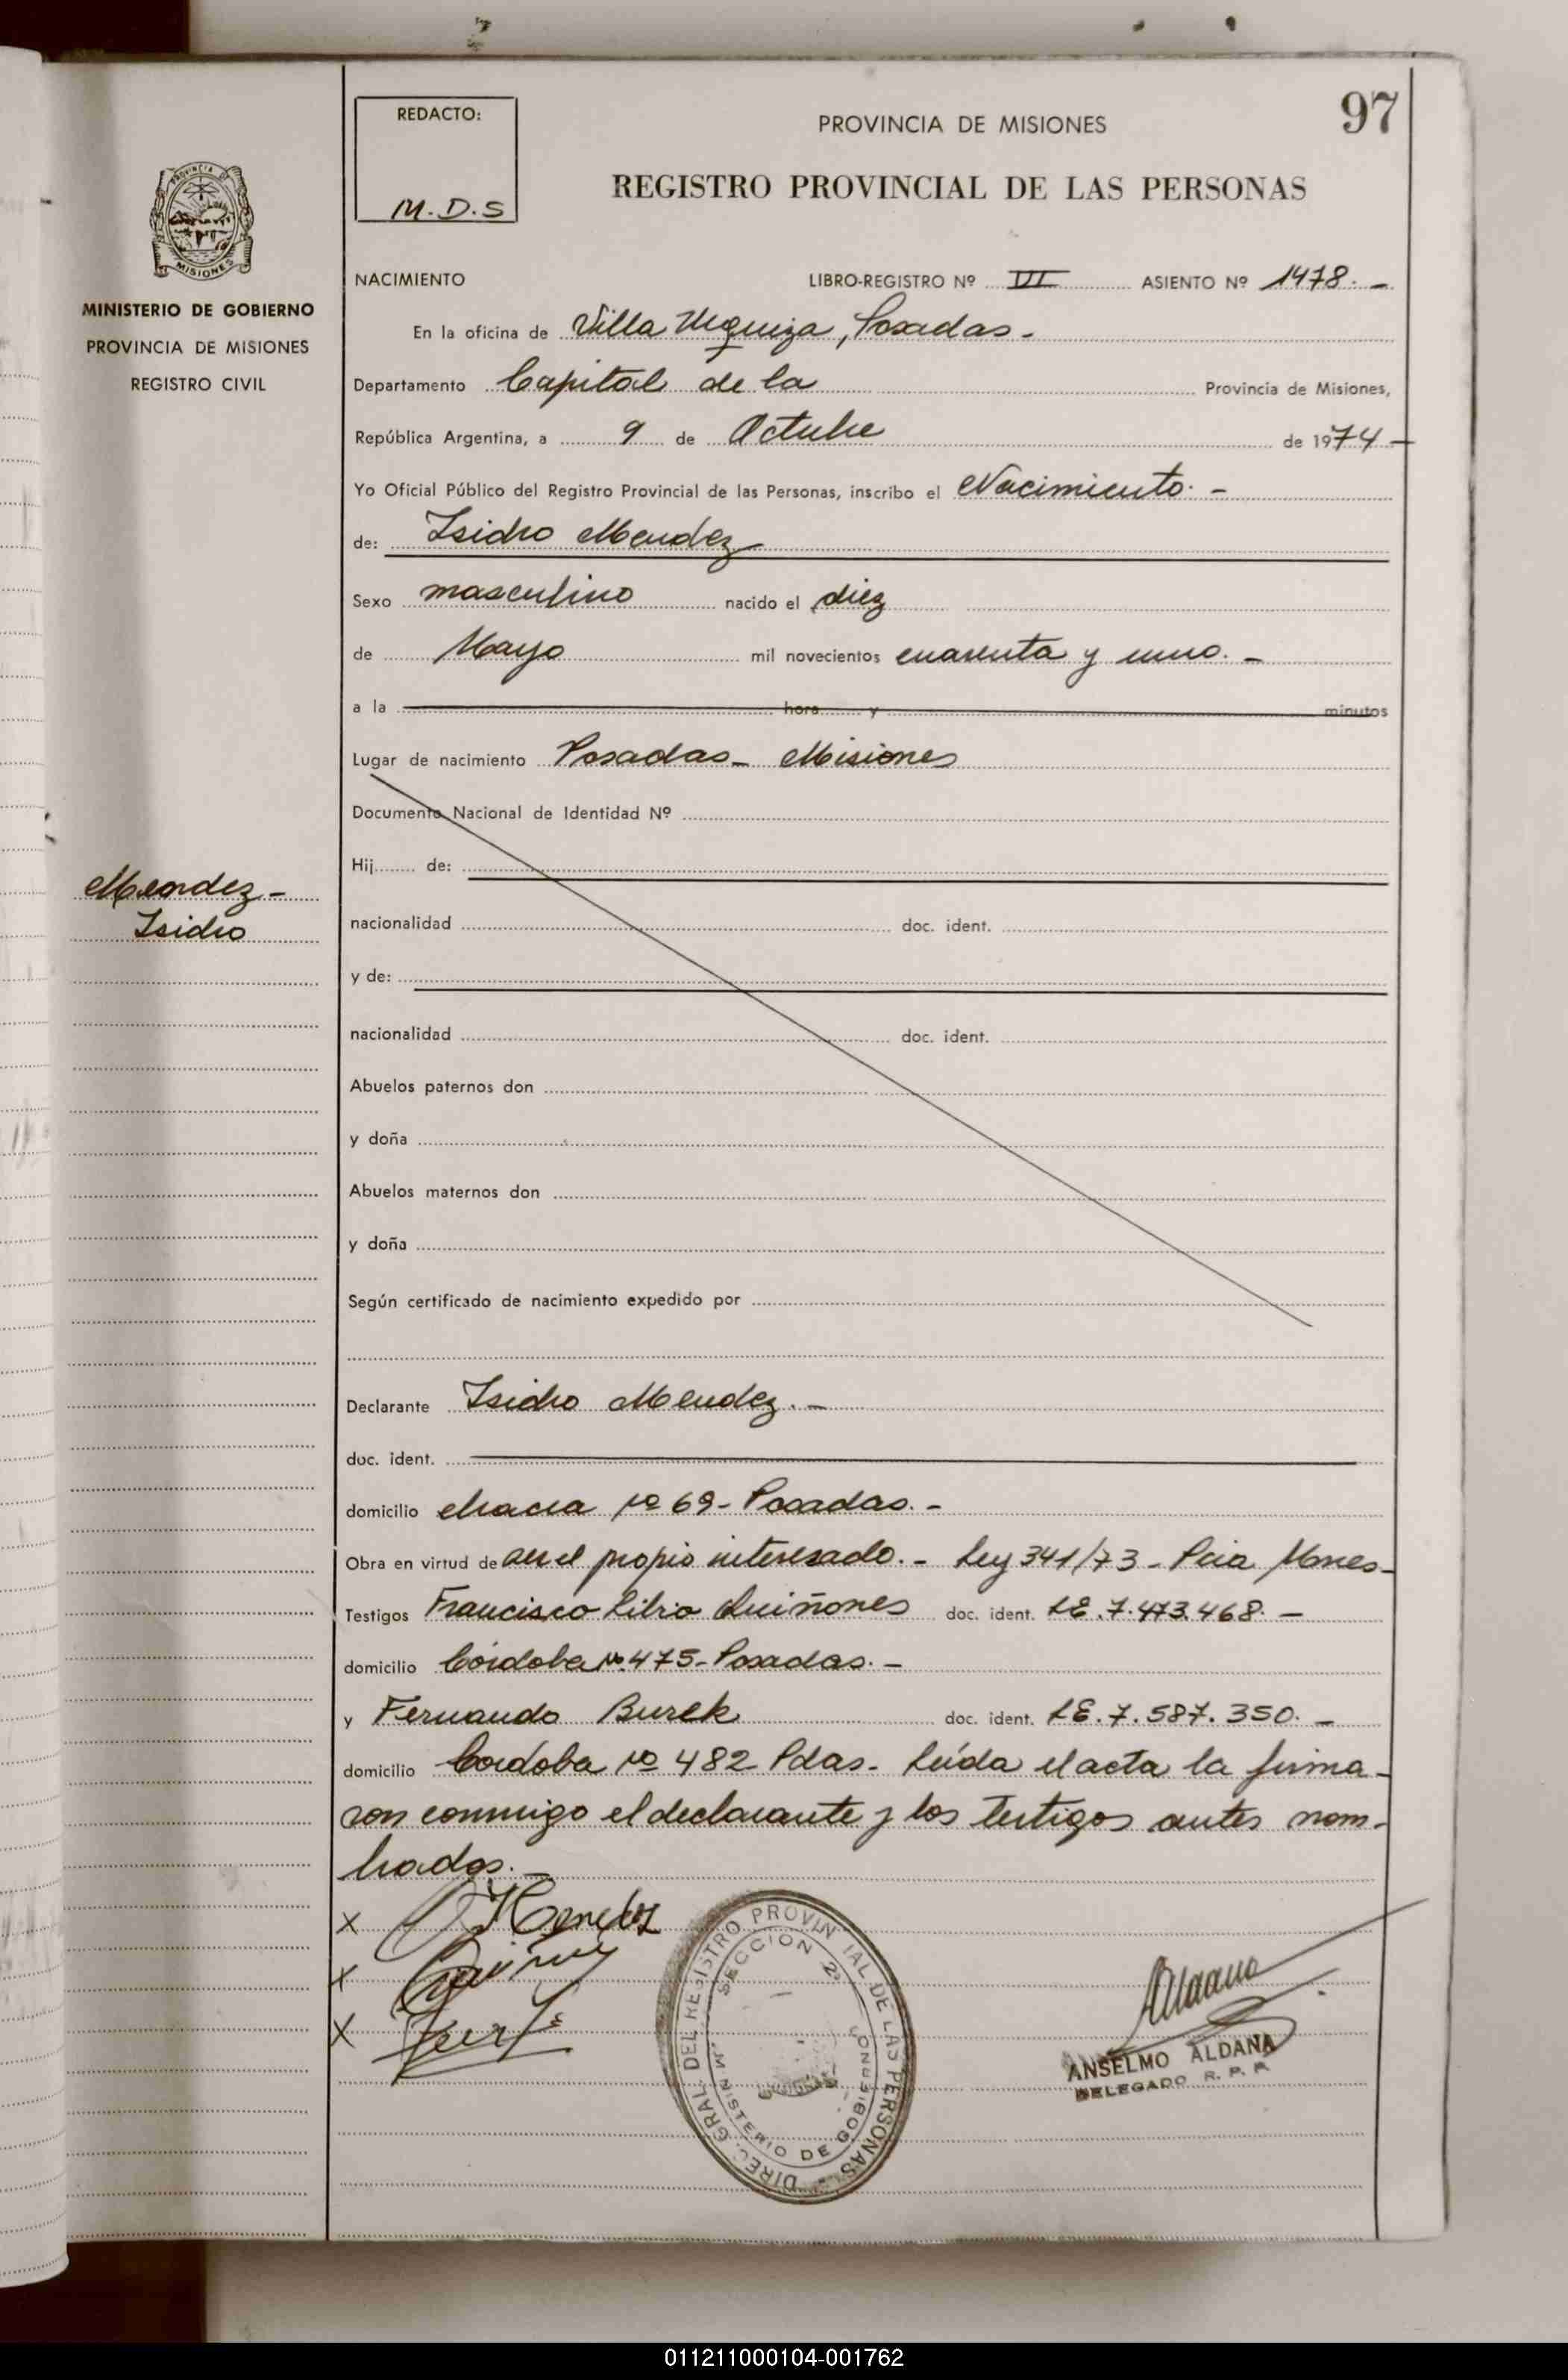 97
REDACTO:
M.D.S
PROVINCIA DE MISIONES
REGISTRO PROVINCIAL DE LAS PERSONAS
MISIONES
MINISTERIO DE GOBIERNO
PROVINCIA DE MISIONES
REGISTRO CIVIL
Mendez-
Isidro
NACIMIENTO LIBRO-REGISTRO Nº ASIENTO Nº 1478.-
En la oficina de Villa Urquiza, Posadas-
Departamento Capital de la Provincia de Misiones,
República Argentina, a 9 de Octubre de 1974-
Yo Oficial Público del Registro Provincial de las Personas, inscribo el Nacimiento.-
de: Isidro Mendez
Sexo masculino nacido el diez
de Mayo mil novecientos cuarenta y uno.-
a la hora y minutos
Lugar de nacimiento Posadas- Misiones
Documento Nacional de Identidad Nº
Hij de:
nacionalidad doc. ident.
y de:
nacionalidad doc. ident.
Abuelos paternos don
y doña
Abuelos maternos don
y doña
Según certificado de nacimiento expedido por
Declarante Isidro Mendez.-
doc. ident.
domicilio chacra Nº 69- Posadas.-
Obra en virtud de ser el propio interesado.- Ley 341/73- Pcia Mnes-
Testigos Francisco Quiñones doc. ident. LE.7.473.468.-
domicilio Córdoba Nº 475- Posadas.-
y Fernando Burek doc. ident. LE.7.587.350.-
domicilio Córdoba Nº 482 Pdas. Leída el acta la firma-
ron conmigo el declarante y los testigos antes nom-
brados.-
X Mendez
X
X
DIREC. GRAL. DEL REGISTRO PROVINCIAL DE LAS PERSONAS
SECCION 2ª
MINISTERIO DE GOBIERNO
Aldana
ANSELMO ALDANA
DELEGADO R. P. P.
011211000104-001762